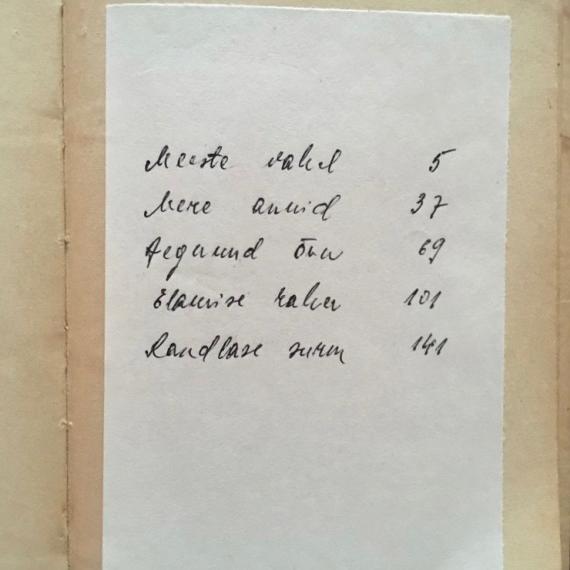 Meeste vahel 5
Mere annid 37
Aegunud õnn 69
Elamise rahu 101
Randlase surm 141